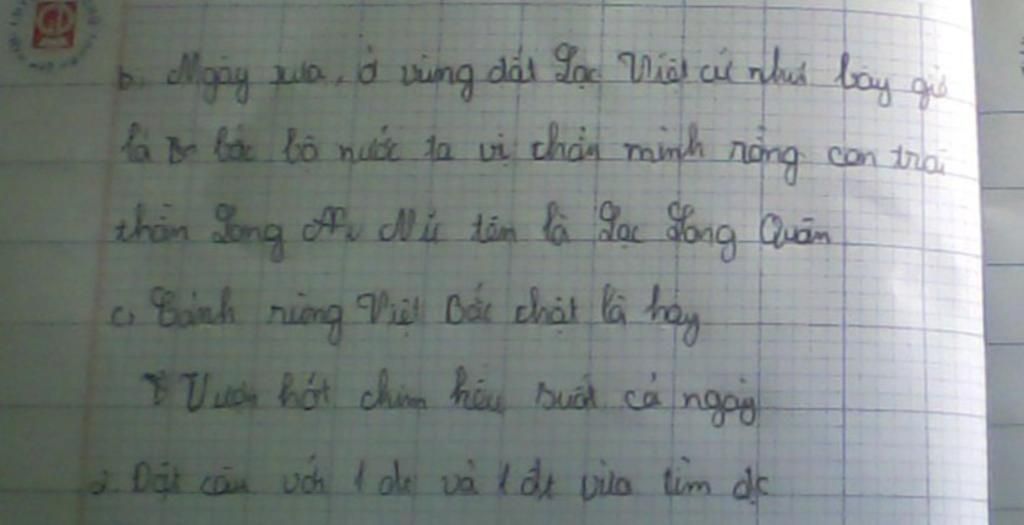 b. Ngày xưa, ở vùng đất Lạc Việt cứ như bây giờ
là bắc bộ nước ta vị thần mình rồng con trai
thần Long Nữ tên là Lạc Long Quân
c, Cảnh rừng Việt Bắc thật là hay
Vượn hót chim kêu suốt cả ngày
2. Đặt câu với 1 và 1 vừa tìm đc